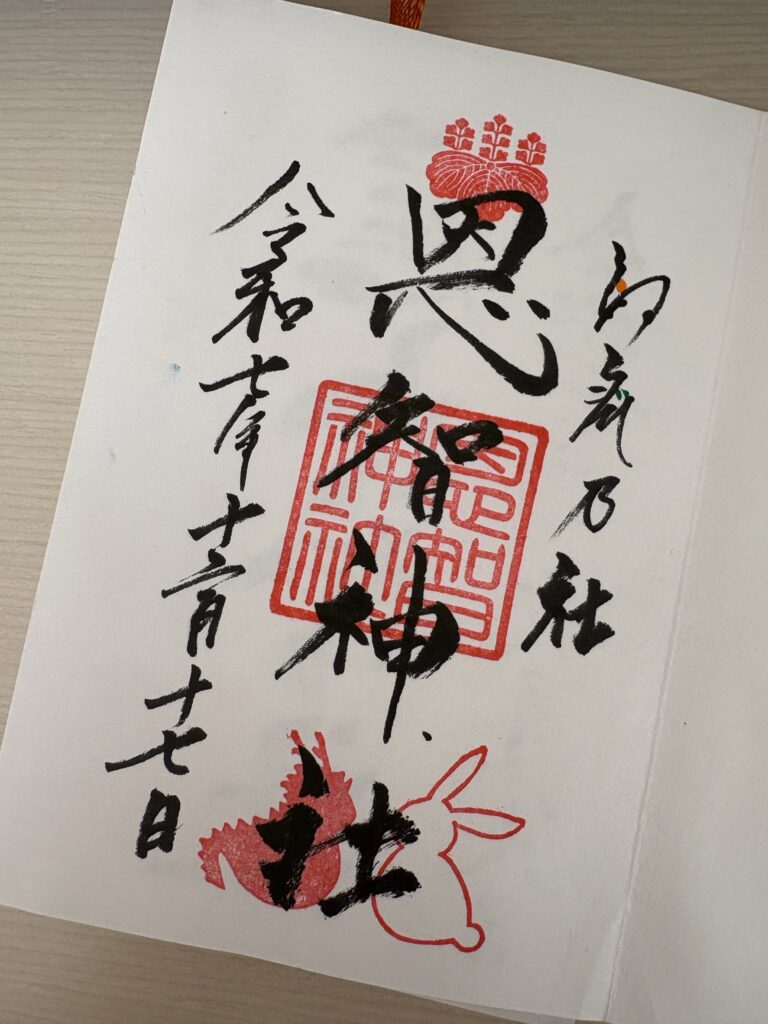 卯辰乃社
恩智神社
恩智神社
令和七年十二月十七日